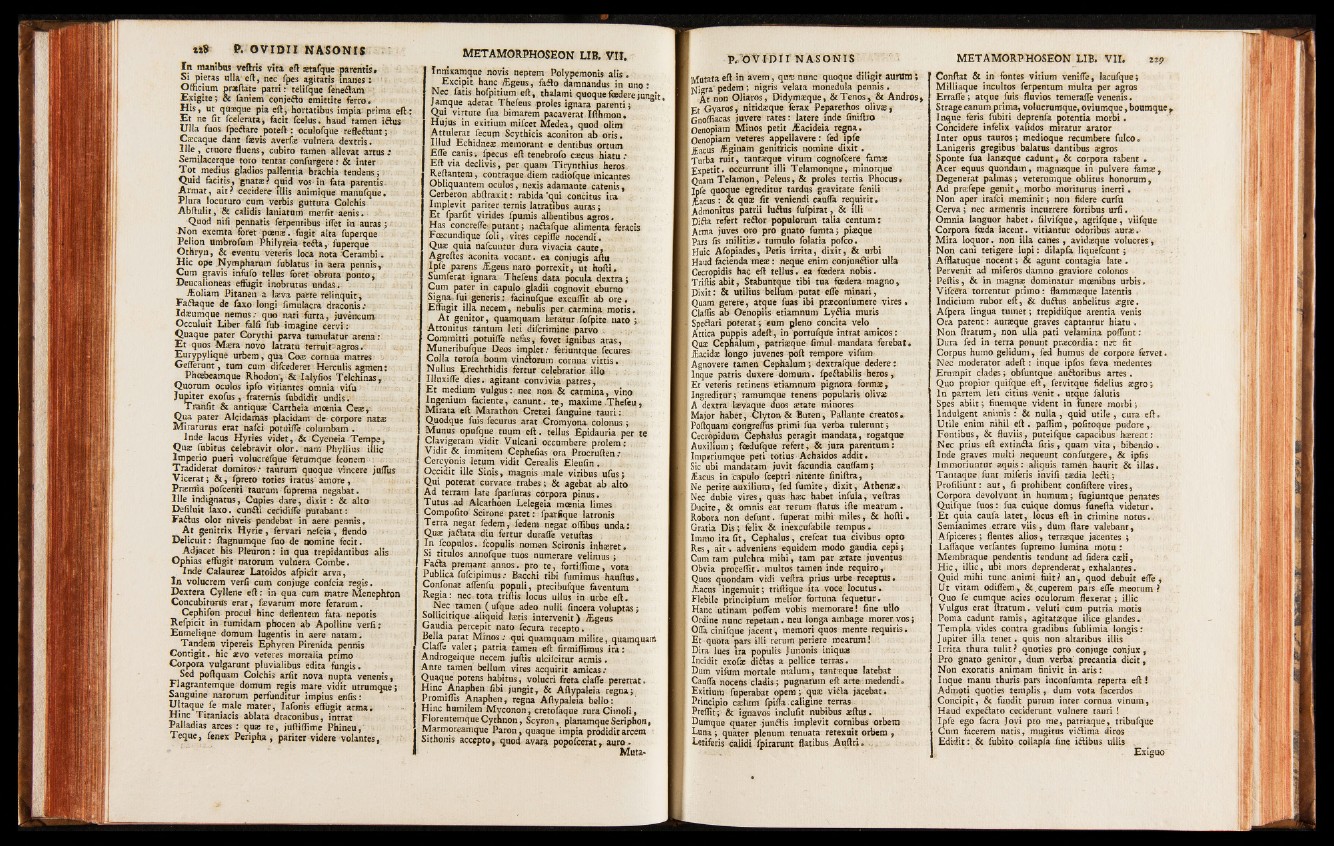 228 P. OVIDII NASONIS
In manibus veſtris vita eſt ætaſque parentis.
Si pietas ulla eſt, nec ſpes agitatis inanes:
Officium præſtate patri: teliſque ſenectam
Exigite; & ſaniem conjecto emittite ferro.
His, ut quæque pia eſt, hortatibus impia prima eſt:
Et ne ſit ſcelerata, facit ſcelus. haud tamen ictus
Ulla ſuos ſpectare poteſt: oculoſque reflectunt;
Cæcaque dant ſævis averſæ vulnera dextris.
Ille, cruore fluens, cubito tamen allevat artus:
Semilacerque toro tentat conſurgere: & inter
Tot medius gladios pallentia brachia tendens;
Quid facitis, gnatæ? quid vos in fata parentis
Armat, ait? cecidere illis animique manuſque.
Plura locuturo cum verbis guttura Colchis
Abſtulit, & calidis laniatum merſit aenis.
Quod niſi pennatis ſerpentibus iſſet in auras;
Non exemta foret pœnæ. fugit alta ſuperque
Pelion umbroſum Philyreia tecta, ſuperque
Othryn, & eventu veteris loca nota Cerambi.
Hic ope Nympharum ſublatus in aera pennis,
Cum gravis infuſo tellus foret obruta ponto,
Deucalioneas effugit inobrutus undas.
Æoliam Pitanen a læva parte relinquit,
Factaque de ſaxo longi ſimulacra draconis:
Idæumque nemus: quo nati furta, juvencum
Occuluit Liber falſi ſub imagine cervi:
Quaque pater Corythi parva tumulatur arena:
Et quos Mæra novo latratu terruit agros.
Eurypylique urbem, qua Coæ cornua matres
Geſſerunt, tum cum diſcederet Herculis agmen:
Phœbeamque Rhodon, & Ialyſios Telchinas,
Quorum oculos ipſo vitiantes omnia viſu
Jupiter exoſus, fraternis ſubdidit undis.
Tranſit & antiquæ Cartheia mœnia Ceæ,
Qua pater Alcidamas placidam de corpore natæ
Miraturus erat naſci potuiſſe columbam.
Inde lacus Hyries videt, & Cycneia Tempe,
Quæ ſubitus celebravit olor. nam Phyllius illic
Imperio pueri volucreſque ferumque leonem
Tradiderat domitos: taurum quoque vincere juſſus
Vicerat; &, ſpreto toties iratus amore,
Præmia poſcenti taurum ſuprema negabat.
Ille indignatus, Cupies dare, dixit: & alto
Deſiluit ſaxo. cuncti cecidiſſe putabant:
Factus olor niveis pendebat in aere pennis.
At genitrix Hyrie, ſervari neſcia, flendo
Delicuit: ſtagnumque ſuo de nomine fecit.
Adjacet his Pleuron: in qua trepidantibus alis
Ophias effugit natorum vulnera Combe.
Inde Calaureæ Latoidos aſpicit arva,
In volucrem verſi cum conjuge conſcia regis.
Dextera Cyllene eſt: in qua cum matre Menephron
Concubiturus erat, ſævarum more ferarum.
Cephiſon procul hinc deflentem fata nepotis
Reſpicit in tumidam phocen ab Apolline verſi;
Eumelique domum lugentis in aere natam.
Tandem vipereis Ephyren Pirenida pennis
Contigit. hic ævo veteres mortalia primo
Corpora vulgarunt pluvialibus edita fungis.
Sed poſtquam Colchis arſit nova nupta venenis,
Flagrantemque domum regis mare vidit utrumque;
Sanguine natorum perfunditur impius enſis:
Ultaque ſe male mater, Iaſonis effugit arma.
Hinc Titaniacis ablata draconibus, intrat
Palladias arces: quæ te, juſtiſſime Phineu,
Teque, ſenex Peripha, pariter videre volantes,
METAMORPHOSEON LIB. VII.
Innixamque novis neptem Polypemonis alis.
Excipit hanc Ægeus, facto damnandus in uno:
Nec ſatis hoſpitium eſt, thalami quoque fœdere jungit.
Jamque aderat Theſeus proles ignara parenti;
Qui virtute ſua bimarem pacaverat Iſthmon.
Hujus in exitium miſcet Medea, quod olim
Attulerat ſecum Scythicis aconiton ab oris.
Illud Echidneæ memorant e dentibus ortum
Eſſe canis. ſpecus eſt tenebroſo cæcus hiatu:
Eſt via declivis, per quam Tirynthius heros
Reſtantem, contraque diem radioſque micantes
Obliquantem oculos, nexis adamante catenis,
Cerberon abſtraxit: rabida qui concitus ira
Implevit pariter ternis latratibus auras;
Et ſparſit virides ſpumis albentibus agros.
Has concreſſe putant; nactaſque alimenta feracis
Fœcundique ſoli, vires cepiſſe nocendi.
Quæ quia naſcuntur dura vivacia caute,
Agreſtes aconita vocant. ea conjugis aſtu
Ipſe parens Ægeus nato porrexit, ut hoſti.
Sumſerat ignara Theſeus data pocula dextra;
Cum pater in capulo gladii cognovit eburno
Signa ſui generis: facinuſque excuſſit ab ore.
Effugit illa necem, nebulis per carmina motis.
At genitor, quamquam lætatur ſoſpite nato;
Attonitus tantum leti diſcrimine parvo
Committi potuiſſe nefas, fovet ignibus aras,
Muneribuſque Deos implet: feriuntque ſecures
Colla toroſa boum vinctorum cornua vittis.
Nullus Erechthidis fertur celebratior illo
Illuxiſſe dies. agitant convivia patres,
Et medium vulgus: nec non & carmina, vino
Ingenium faciente, canunt. te, maxime Theſeu,
Mirata eſt Marathon Cretæi ſanguine tauri:
Quodque ſuis ſecurus arat Cromyona colonus;
Munus opuſque tuum eſt. tellus Epidauria per te
Clavigeram vidit Vulcani occumbere prolem:
Vidit & immitem Cepheſias ora Procruſten:
Cercyonis letum vidit Cerealis Eleuſin.
Occidit ille Sinis, magnis male viribus uſus;
Qui poterat curvare trabes; & agebat ab alto
Ad terram late ſparſuras corpora pinus.
Tutus ad Alcathoen Lelegeia mœnia limes
Compoſito Scirone patet: ſparſique latronis
Terra negat ſedem, ſedem negat oſſibus unda:
Quæ jactata diu fertur duraſſe vetuſtas
In ſcopulos. ſcopulis nomen Scironis inhæret.
Si titulos annoſque tuos numerare velimus;
Facta premant annos. pro te, fortiſſime, vota
Publica ſuſcipimus: Bacchi tibi ſumimus hauſtus.
Conſonat aſſenſu populi, precibuſque faventum
Regia: nec tota triſtis locus ullus in urbe eſt.
Nec tamen (uſque adeo nulli ſincera voluptas;
Sollicitique aliquid lætis intervenit) Ægeus
Gaudia percepit nato ſecura recepto.
Bella parat Minos: qui quamquam milite, quamquam
Claſſe valet; patria tamen eſt firmiſſimus ira:
Androgeique necem juſtis ulciſcitur armis.
Ante tamen bellum vires acquirit amicas:
Quaque potens habitus, volucri freta claſſe pererrat.
Hinc Anaphen ſibi jungit, & Aſtypaleia regna;
Promiſſis Anaphen, regna Aſtypaleia bello:
Hinc humilem Myconon, cretoſaque rura Cimoli,
Florentemque Cythnon, Scyron, planamque Seriphon,
Marmoreamque Paron, quaque impia prodidit arcem
Sithonis accepto, quod avara popoſcerat, auro.
Muta-
P. OVIDII NASONIS
Mutata eſt in avem, quæ nunc quoque diligit aurum;
Nigra pedem; nigris velata monedula pennis.
At non Oliaros, Didymæque, & Tenos, & Andros,
Et Gyaros, nitidæque ferax Peparethos olivæ,
Gnoſſiacas juvere rates: latere inde ſiniſtro
Oenopiam Minos petit Æacideia regna.
Oenopiam veteres appellavere: ſed ipſe
Æacus Æginam genitricis nomine dixit.
Turba ruit, tantæque virum cognoſcere famæ
Expetit. occurrunt illi Telamonque, minorque
Quam Telamon, Peleus, & proles tertia Phocus.
Ipſe quoque egreditur tardus gravitate ſenili
Æacus: & quæ ſit veniendi cauſſa requirit.
Admonitus patrii luctus ſuſpirat, & illi
Dicta refert rector populorum talia centum:
Arma juves oro pro gnato ſumta; piæque
Pars ſis militiæ. tumulo ſolatia poſco.
Huic Aſopiades, Petis irrita, dixit, & urbi
Haud facienda meæ: neque enim conjunctior ulla
Cecropidis hac eſt tellus. ea fœdera nobis.
Triſtis abit, Stabuntque tibi tua fœdera magno,
Dixit: & utilius bellum putat eſſe minari,
Quam gerere, atque ſuas ibi præconſumere vires.
Claſſis ab Oenopiis etiamnum Lyctia muris
Spectari poterat; cum pleno concita velo
Attica puppis adeſt, in portuſque intrat amicos:
Quæ Cephalum, patriæque ſimul mandata ferebat.
Æacidæ longo juvenes poſt tempore viſum
Agnovere tamen Cephalum; dextraſque dedere:
Inque patris duxere domum. ſpectabilis heros,
Et veteris retinens etiamnum pignora formæ,
Ingreditur; ramumque tenens popularis olivæ
A dextra lævaque duos ætate minores
Major habet, Clyton & Buten, Pallante creatos.
Poſtquam congreſſus primi ſua verba tulerunt;
Cecropidum Cephalus peragit mandata, rogatque
Auxilium; fœduſque refert, & jura parentum:
Imperiumque peti totius Achaidos addit.
Sic ubi mandatam juvit facundia cauſſam;
Æacus in capulo ſceptri nitente ſiniſtra,
Ne petite auxilium, ſed ſumite, dixit, Athenæ.
Nec dubie vires, quas hæc habet inſula, veſtras
Ducite, & omnis eat rerum ſtatus iſte mearum.
Robora non deſunt. ſuperat mihi miles, & hoſti.
Gratia Dis; felix & inexcuſabile tempus.
Immo ita ſit, Cephalus, creſcat tua civibus opto
Res, ait. adveniens equidem modo gaudia cepi;
Cum tam pulchra mihi, tam par ætate juventus
Obvia proceſſit. multos tamen inde requiro,
Quos quondam vidi veſtra prius urbe receptus.
Æacus ingemuit; triſtique ita voce locutus.
Flebile principium melior fortuna ſequetur.
Hanc utinam poſſem vobis memorare! ſine ullo
Ordine nunc repetam. neu longa ambage morer vos;
Oſſa ciniſque jacent, memori quos mente requiris.
Et quota pars illi rerum periere mearum!
Dira lues ira populis Junonis iniquæ
Incidit exoſæ dictas a pellice terras.
Dum viſum mortale malum, tantæque latebat
Cauſſa nocens cladis; pugnatum eſt arte medendi.
Exitium ſuperabat opem; quæ victa jacebat.
Principio cælum ſpiſſa caligine terras
Preſſit; & ignavos incluſit nubibus æſtus.
Dumque quater junctis implevit cornibus orbem
Luna; quater plenum tenuata retexuit orbem,
Letiferis calidi ſpirarunt flatibus Auſtri.
METAMORPHOSEON LIB. VII. 229
Conſtat & in fontes vitium veniſſe, lacuſque;
Milliaque incultos ſerpentum multa per agros
Erraſſe; atque ſuis fluvios temeraſſe venenis.
Strage canum prima, volucrumque, oviumque, boumque,
Inque feris ſubiti deprenſa potentia morbi.
Concidere infelix validos miratur arator
Inter opus tauros; medioque recumbere ſulco.
Lanigeris gregibus balatus dantibus ægros
Sponte ſua lanæque cadunt, & corpora tabent.
Acer equus quondam, magnæque in pulvere famæ,
Degenerat palmas; veterumque oblitus honorum,
Ad præſepe gemit, morbo moriturus inerti.
Non aper iraſci meminit; non fidere curſu
Cerva; nec armentis incurrere fortibus urſi.
Omnia languor habet. ſilviſque, agriſque, viiſque
Corpora fœda jacent. vitiantur odoribus auræ.
Mira loquor. non illa canes, avidæque volucres,
Non cani tetigere lupi: dilapſa liqueſcunt;
Afflatuque nocent; & agunt contagia late.
Pervenit ad miſeros damno graviore colonos
Peſtis, & in magnæ dominatur mœnibus urbis.
Viſcera torrentur primo: flammæque latentis
Indicium rubor eſt, & ductus anhelitus ægre.
Aſpera lingua tumet; trepidiſque arentia venis
Ora patent: auræque graves captantur hiatu.
Non ſtratum, non ulla pati velamina poſſunt:
Dura ſed in terra ponunt præcordia: nec fit
Corpus humo gelidum, ſed humus de corpore fervet.
Nec moderator adeſt: inque ipſos ſæva medentes
Erumpit clades; obſuntque auctoribus artes.
Quo propior quiſque eſt, ſervitque fidelius ægro;
In partem leti citius venit. utque ſalutis
Spes abiit; finemque vident in funere morbi;
Indulgent animis: & nulla, quid utile, cura eſt.
Utile enim nihil eſt. paſſim, poſitoque pudore,
Fontibus, & fluviis, puteiſque capacibus hærent:
Nec prius eſt extincta ſitis, quam vita, bibendo.
Inde graves multi nequeunt conſurgere, & ipſis
Immoriuntur aquis: aliquis tamen haurit & illas.
Tantaque ſunt miſeris inviſi tædia lecti;
Proſiliunt: aut, ſi prohibent conſiſtere vires,
Corpora devolvunt in humum; fugiuntque penates
Quiſque ſuos: ſua cuique domus funeſta videtur.
Et quia cauſa latet, locus eſt in crimine notus.
Semianimes errare viis, dum ſtare valebant,
Aſpiceres; flentes alios, terræque jacentes;
Laſſaque verſantes ſupremo lumina motu:
Membraque pendentis tendunt ad ſidera cæli,
Hic, illic, ubi mors deprenderat, exhalantes.
Quid mihi tunc animi fuit? an, quod debuit eſſe,
Ut vitam odiſſem, & cuperem pars eſſe meorum?
Quo ſe cumque acies oculorum flexerat; illic
Vulgus erat ſtratum. veluti cum putria motis
Poma cadunt ramis, agitatæque ilice glandes.
Templa vides contra gradibus ſublimia longis:
Jupiter illa tenet. quis non altaribus illis
Irrita thura tulit? quoties pro conjuge conjux,
Pro gnato genitor, dum verba precantia dicit,
Non exoratis animam finivit in aris:
Inque manu thuris pars inconſumta reperta eſt!
Admoti quoties templis, dum vota ſacerdos
Concipit, & fundit purum inter cornua vinum,
Haud expectato ceciderunt vulnere tauri!
Ipſe ego ſacra Jovi pro me, patriaque, tribuſque
Cum facerem natis, mugitus victima diros
Edidit: & ſubito collapſa ſine ictibus ullis
Exiguo